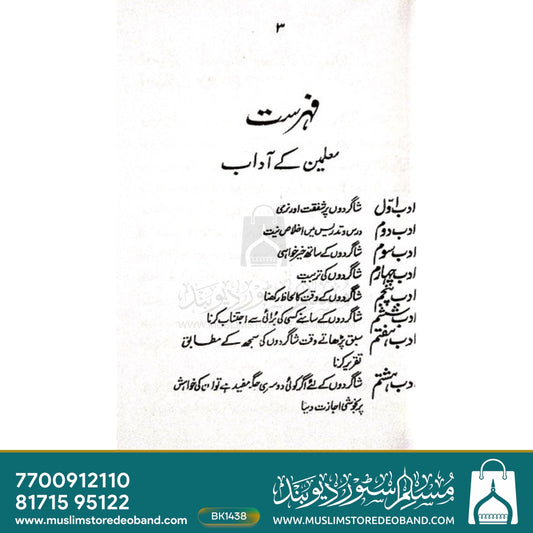 ۳
فہرست
معلمین کے آداب
ادب اوّل شاگردوں پر شفقت اور نرمی
ادب دوم درس و تدریس میں اخلاص نیت
ادب سوم شاگردوں کے ساتھ خیر خواہی
ادب چہارم شاگردوں کی تربیت
ادب پنجم شاگردوں کے وقت کا لحاظ رکھنا
ادب ششم شاگردوں کے سامنے کسی کی برائی سے اجتناب کرنا
ادب ہفتم سبق پڑھاتے وقت شاگردوں کی سمجھ کے مطابق
تقریر کرنا
ادب ہشتم شاگردوں کے لئے اگر کوئی دوسری جگہ مفید ہے تو ان کی خواہش
پر بخوشی اجازت دینا
مسلم سٹور دیوبند
7700912110
81715 95122
www.muslimstoredeoband.com
BK1438
مسلم سٹور دیوبند
WWW.MUSLIMSTOREDEOBAND.COM